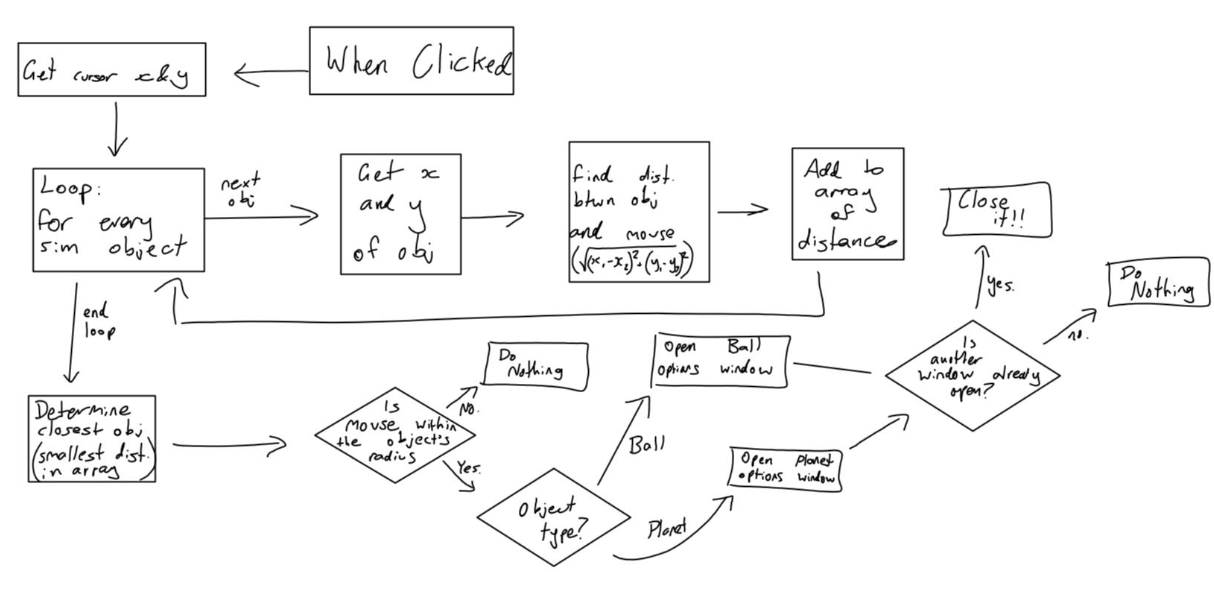 When Clicked
Get cursor x&y
Loop:
for every
sim object
next
obj
Get x
and y
of obj
find dist.
btwn obj
and mouse
(√(x₁-x₂)²+(y₁-y₂)²)
Add to
array
of
distances
end
loop
Determine
closest obj
(smallest dist.
in array)
Is
mouse within
the object's
radius
No.
Do
Nothing
Yes.
Object
type?
Ball
Open Ball
options window
Planet
Open Planet
options window
Is
another
window already
open?
yes.
Close
it!!
no.
Do
Nothing